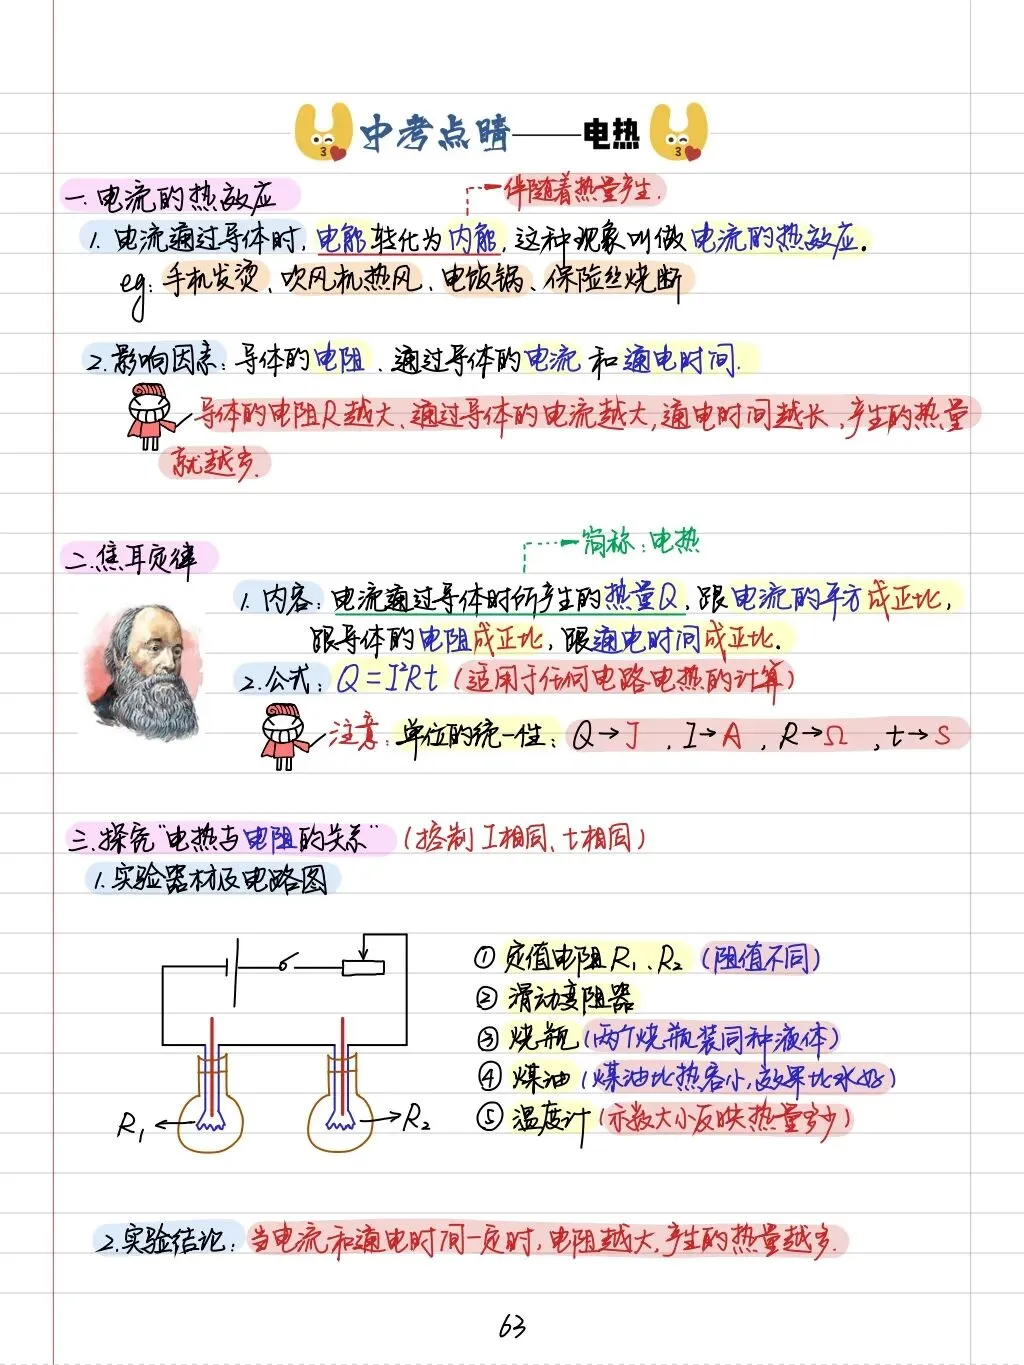 中考点睛——电热
一.电流的热效应
伴随着热量产生.
1. 电流通过导体时,电能转化为内能,这种现象叫做电流的热效应。
eg: 手机发烫、吹风机热风、电饭锅、保险丝烧断
2.影响因素: 导体的电阻、通过导体的电流和通电时间.
导体的电阻R越大、通过导体的电流越大,通电时间越长,产生的热量
就越多.
二.焦耳定律
简称:电热
1. 内容: 电流通过导体时所产生的热量Q,跟电流的平方成正比,
跟导体的电阻成正比,跟通电时间成正比.
2.公式: Q=I²Rt (适用于任何电路电热的计算)
注意: 单位的统一性: Q→J , I→A , R→Ω , t→S
三.探究"电热与电阻的关系" (控制I相同、t相同)
1.实验器材及电路图
① 定值电阻R₁、R₂ (阻值不同)
② 滑动变阻器
③ 烧瓶 (两个烧瓶装同种液体)
④ 煤油 (煤油比热容小,效果比水好)
⑤ 温度计 (示数大小反映热量多少)
R₁
R₂
2.实验结论: 当电流和通电时间一定时,电阻越大,产生的热量越多.
63